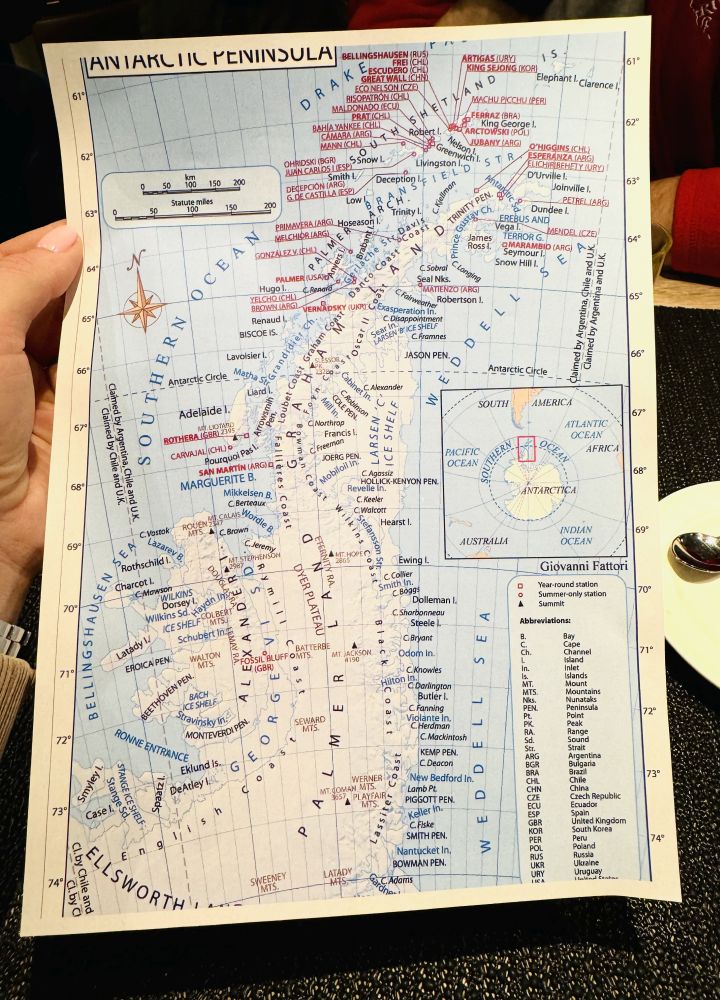 ANTARCTIC PENINSULA
DRAKE PA
IS.
61°
61°
BELLINGSHAUSEN (RUS)
FREI (CHL)
ESCUDERO (CHL)
GREAT WALL (CHN)
ECO NELSON (CZE)
RISOPATRÓN (CHL)
MALDONADO (ECU)
PRAT (CHL)
BAHÍA YANKEE (CHL)
CÁMARA (ARG)
MANN (CHL)
ARTIGAS (URY)
KING SEJONG (KOR)
Elephant I.
Clarence I.
MACHU PICCHU (PER)
SOUTH SHETLAND
FERRAZ (BRA)
King George I.
ARCTOWSKI (POL)
JUBANY (ARG)
62°
62°
Robert I.
Nelson I.
Greenwich I.
Snow I.
Livingston I.
O'HIGGINS (CHL)
ESPERANZA (ARG)
ELICHIRIBEHETY (URY)
OHRIDSKI (BGR)
JUAN CARLOS I (ESP)
Smith I.
Deception I.
BRANSFIELD STR.
D'Urville I.
Joinville I.
63°
63°
DECEPCIÓN (ARG)
G. DE CASTILLA (ESP)
Low I.
Antarctic Sd.
PETREL (ARG)
Dundee I.
km
0 50 100 150 200
Statute miles
0 50 100 150 200
Trinity I.
C. Kjellman
TRINITY PEN.
Prince Gustav Ch.
EREBUS AND
TERROR G.
Vega I.
MENDEL (CZE)
James
Ross I.
MARAMBIO (ARG)
Seymour I.
Snow Hill I.
64°
64°
PRIMAVERA (ARG)
MELCHIOR (ARG)
GONZÁLEZ V. (CHL)
Hoseason I.
PALMER ARCH.
Brabant I.
Anvers I.
Gerlache Str.
Davis Coast
Danco Coast
PALMER (USA)
Hugo I.
C. Renard
YELCHO (CHL)
BROWN (ARG)
VERNADSKY (UKR)
C. Sobral
C. Longing
Seal Nks.
MATIENZO (ARG)
Robertson I.
C. Fairweather
Exasperation In.
C. Disappointment
Scar In.
LARSEN B ICE SHELF
C. Framnes
JASON PEN.
65°
65°
N
SOUTHERN OCEAN
WEDDELL SEA
Claimed by Argentina, Chile and U.K.
Claimed by Argentina and U.K.
Renaud I.
BISCOE IS.
Grandidier Ch.
Graham Coast
Oscar II Coast
GRAHAM LAND
Lavoisier I.
Antarctic Circle
Antarctic Circle
66°
66°
Matha St.
Liard I.
Loubet Coast
Foyn Coast
Cabinet In.
C. Alexander
C. Robinson
COLE PEN.
Mill In.
C. Northrop
Francis I.
C. Freeman
JOERG PEN.
Mobiloil In.
LARSEN C
ICE SHELF
Claimed by Argentina, Chile and U.K.
Claimed by Chile and U.K.
Adelaide I.
MT. LIOTARD
2395
Arrowsmith
Pen.
ROTHERA (GBR)
CARVAJAL (CHL)
Pourquoi Pas I.
SAN MARTÍN (ARG)
MARGUERITE B.
Fallières Coast
Bowman Coast
67°
67°
68°
68°
C. Agassiz
HOLLICK-KENYON PEN.
Revelle In.
C. Keeler
C. Walcott
Hearst I.
Wilkins Coast
Stefansson Sd.
Mikkelsen B.
C. Berteaux
Wordie B.
ROUEN
MT. CALAIS
2347
C. Brown
C. Vostok
Lazarev B.
C. Jeremy
Rothschild I.
MT. STEPHENSON
2987
ETERNITY RA.
MT. HOPE
2865
DYER PLATEAU
69°
69°
Ewing I.
C. Collier
Smith In.
C. Boggs
Dolleman I.
C. Sharbonneau
Steele I.
C. Bryant
Odom In.
Charcot I.
C. Mawson
WILKINS
Dorsey I.
Wilkins Sd.
Haydn In.
ICE SHELF
COLBERT
MTS.
Schubert In.
Latady I.
EROICA PEN.
WALTON
MTS.
DOUGLAS RA.
LEMAY RA.
ALEXANDER I.
GEORGE VI SD.
Rymill Coast
FOSSIL BLUFF
(GBR)
BATTERBE
MTS.
MT. JACKSON
4190
Black Coast
PALMER LAND
BELLINGSHAUSEN SEA
70°
70°
71°
71°
BEETHOVEN PEN.
BACH
ICE SHELF
Stravinsky In.
MONTEVERDI PEN.
SEWARD
MTS.
C. Knowles
Hilton In.
C. Darlington
Butler I.
C. Fanning
Violante In.
C. Herdman
C. Mackintosh
KEMP PEN.
C. Deacon
New Bedford In.
Lamb Pt.
PIGGOTT PEN.
Keller In.
C. Fiske
SMITH PEN.
Nantucket In.
BOWMAN PEN.
C. Adams
72°
72°
RONNE ENTRANCE
Eklund Is.
DeAtley I.
Smyley I.
STANGE ICE SHELF
Stange Sd.
Case I.
Spaatz I.
English Coast
WERNER
MTS.
MT. COMAN
3657
PLAYFAIR
MTS.
Lassiter Coast
WEDDELL SEA
73°
73°
74°
74°
Cl. by Chile and
ELLSWORTH LAN
SWEENEY
MTS.
LATADY
MTS.
SOUTH AMERICA
ATLANTIC
OCEAN
AFRICA
PACIFIC
OCEAN
SOUTHERN OCEAN
ANTARCTICA
INDIAN
OCEAN
AUSTRALIA
Giovanni Fattori
Year-round station
Summer-only station
Summit
Abbreviations:
B. Bay
C. Cape
Ch. Channel
I. Island
In. Inlet
Is. Islands
MT. Mount
MTS. Mountains
Nks. Nunataks
PEN. Peninsula
Pt. Point
PK. Peak
RA. Range
Sd. Sound
Str. Strait
ARG Argentina
BGR Bulgaria
BRA Brazil
CHL Chile
CHN China
CZE Czech Republic
ECU Ecuador
ESP Spain
GBR United Kingdom
KOR South Korea
PER Peru
POL Poland
RUS Russia
UKR Ukraine
URY Uruguay